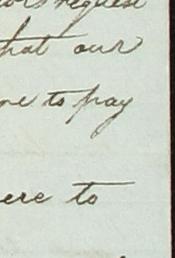 request
that our
me to pay
ere to